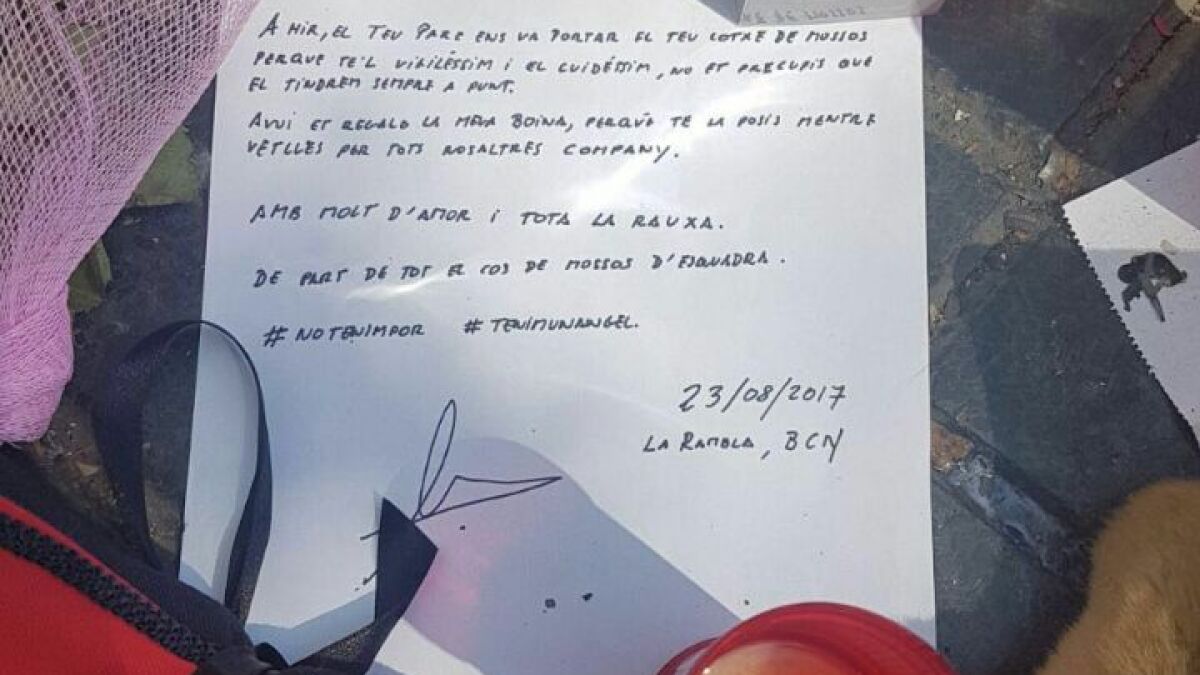 A MIR, EL TEU PARE ENS VA PORTAR EL TEU COTXE DE MOSSOS
PERQUE TE'L VIXILÉSSIM I EL CUIDÉSSIM, NO ET PRECUPIS QUE
EL TINDREM SEMPRE A PUNT.
AVUI ET REGALO LA MEVA BOINA, PERQUÈ TE LA POSIS MENTRE
VETLLES PER TOTS NOSALTRES COMPANY.
AMB MOLT D'AMOR I TOTA LA RAUXA.
DE PART DE TOT EL COS DE MOSSOS D'ESQUADRA.
#NOTENIMPOR #TENIMUNANGEL.
23/08/2017
LA RAMBLA, BCN